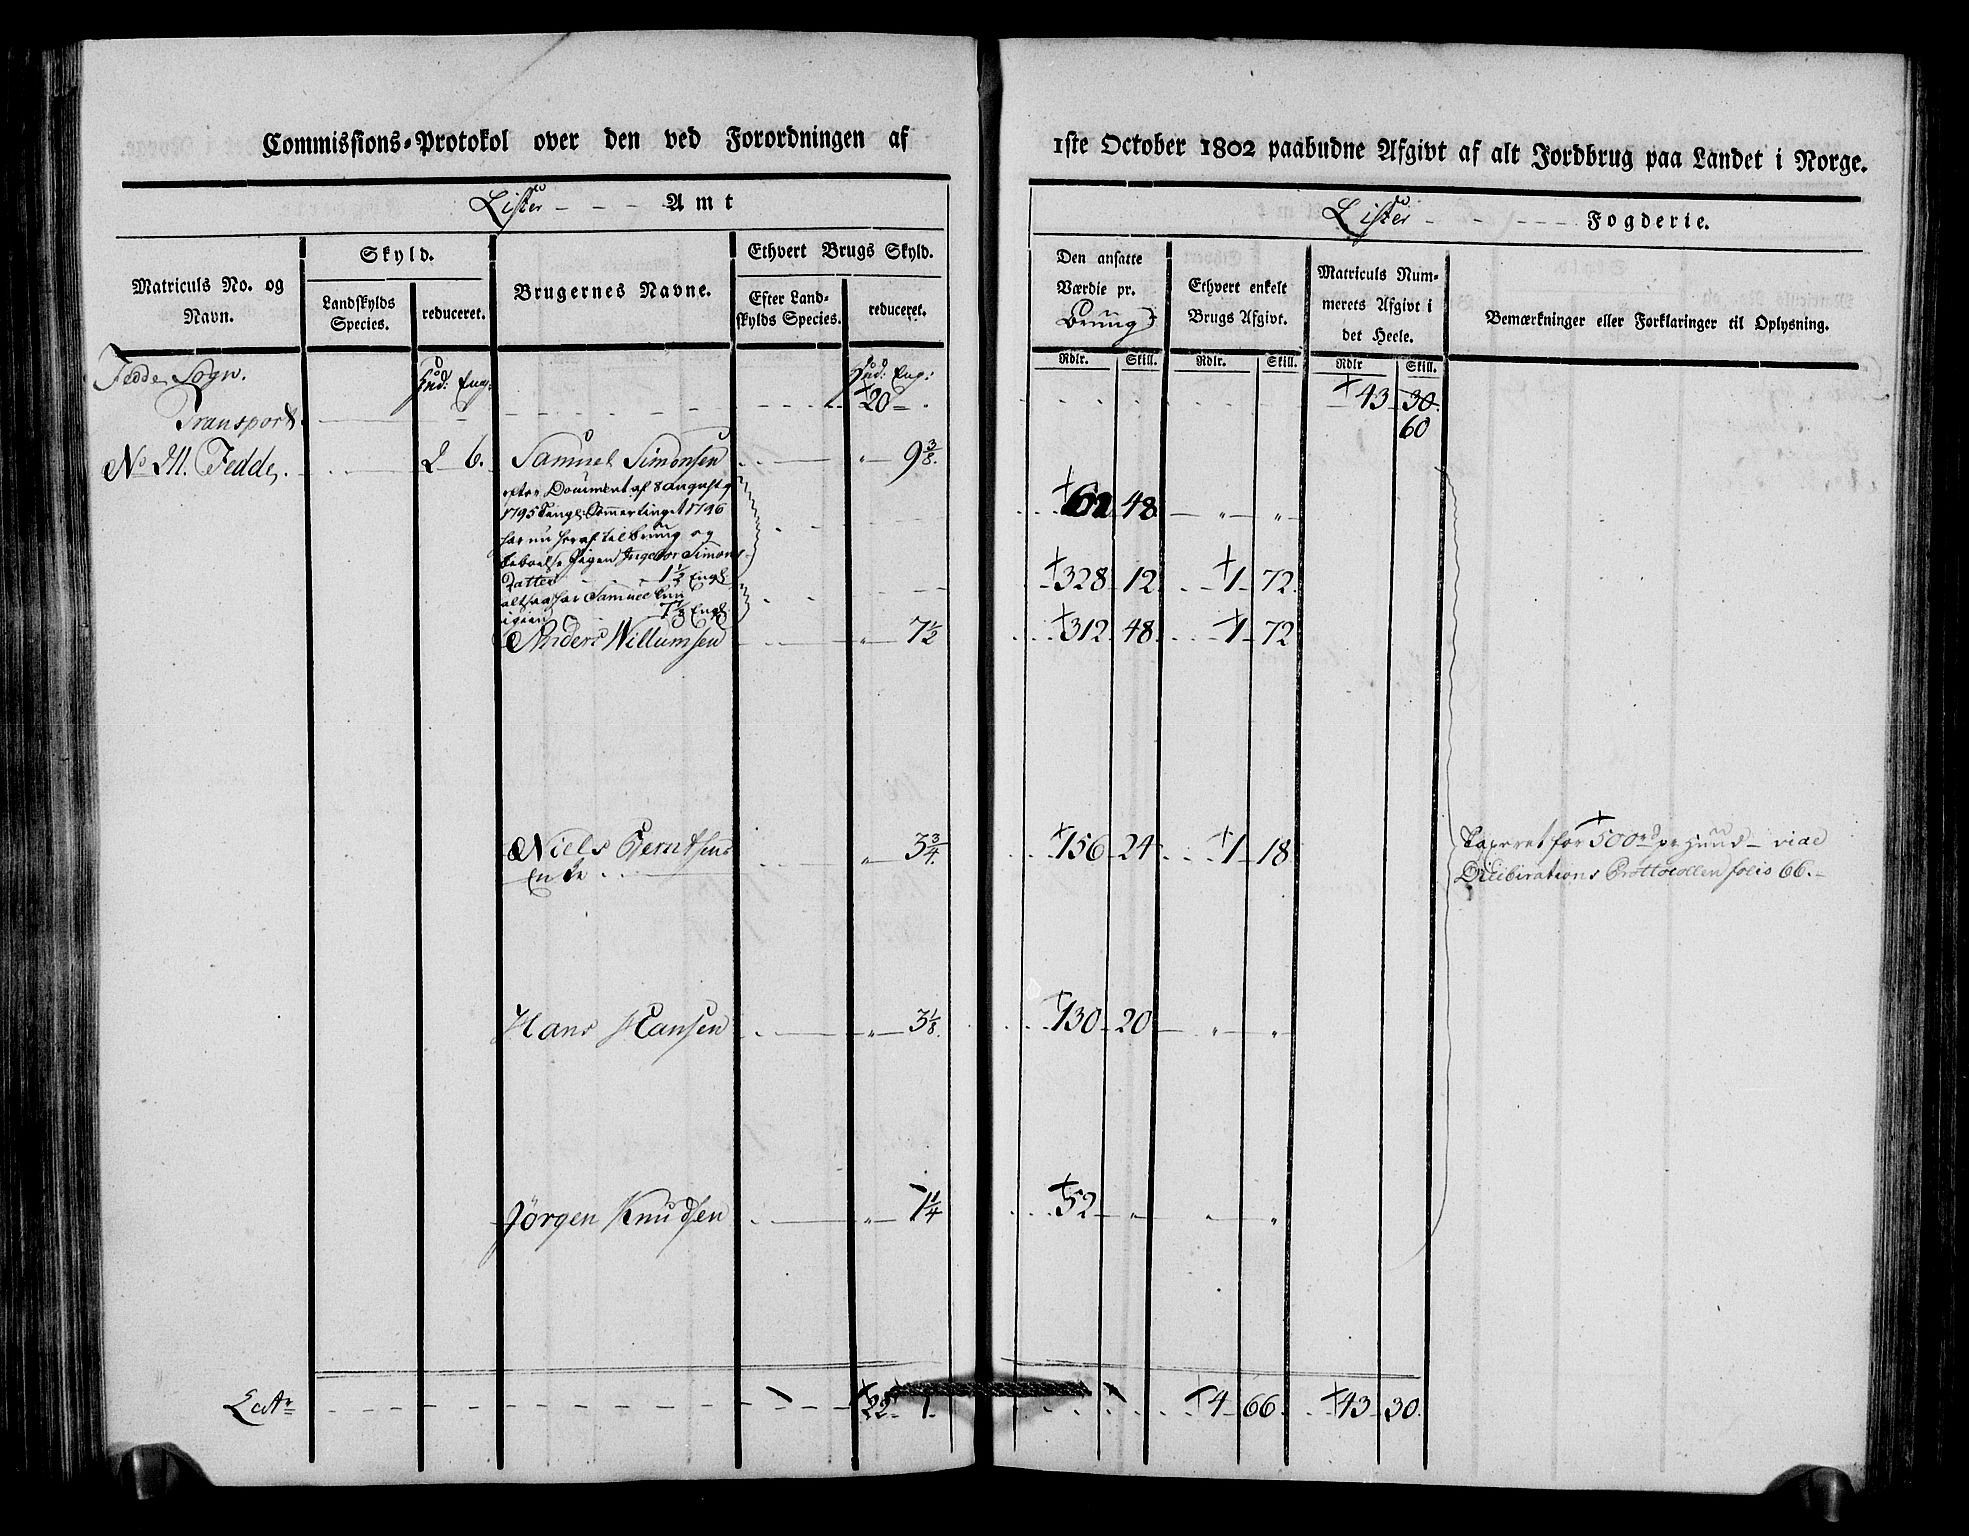 Commissions-Protokol over den ved Forordningen af
Lister - - - Amt
Matriculs No. og Navn.
Skyld.
Landskylds Species.
reduceret.
Brugernes Navne.
Ethvert Brugs Skyld.
Efter Landskylds Species.
reduceret.
Fedde Sogn.
Hud: Eng:
Hud: Eng:
Transport
20 -
No 211. Fedde,
2 6.
Samuel Simonsen
" 9 3/8.
efter Document af 8 august
1795 Tingl: Sommertinget 1796
har nu heraf til brug og
Pigen Ingebor Simons
Datter 1 1/2 Engl
altsaa har Samuel kun
igien 7 Engl
Anders Willumsen
" 7 1/2
Niels Berntsens
Enke
" 3 3/4.
Hans Hansen
" 3 1/8.
Jörgen Knudsen
" 1 1/4
Latr
22. 1.
1ste October 1802 paabudne Afgivt af alt Jordbrug paa Landet i Norge.
Lister - - - Fogderie.
Den ansatte Værdie pr. Brug
Ethvert enkelt Brugs Afgivt.
Matriculs Nummerets Afgivt i det Heele.
Bemærkninger eller Forklaringer til Oplysning.
Rdlr. Skill. Rdlr. Skill. Rdlr Skill.
43 30.
60
48 " "
328 12 1 72.
312 48 1 72
156 24 1 18
Taxeret for 500rd pr Huud - vide
Deliberations Prottocollen folio 66. -
130 20 " "
52 " " "
4 66 43 30.